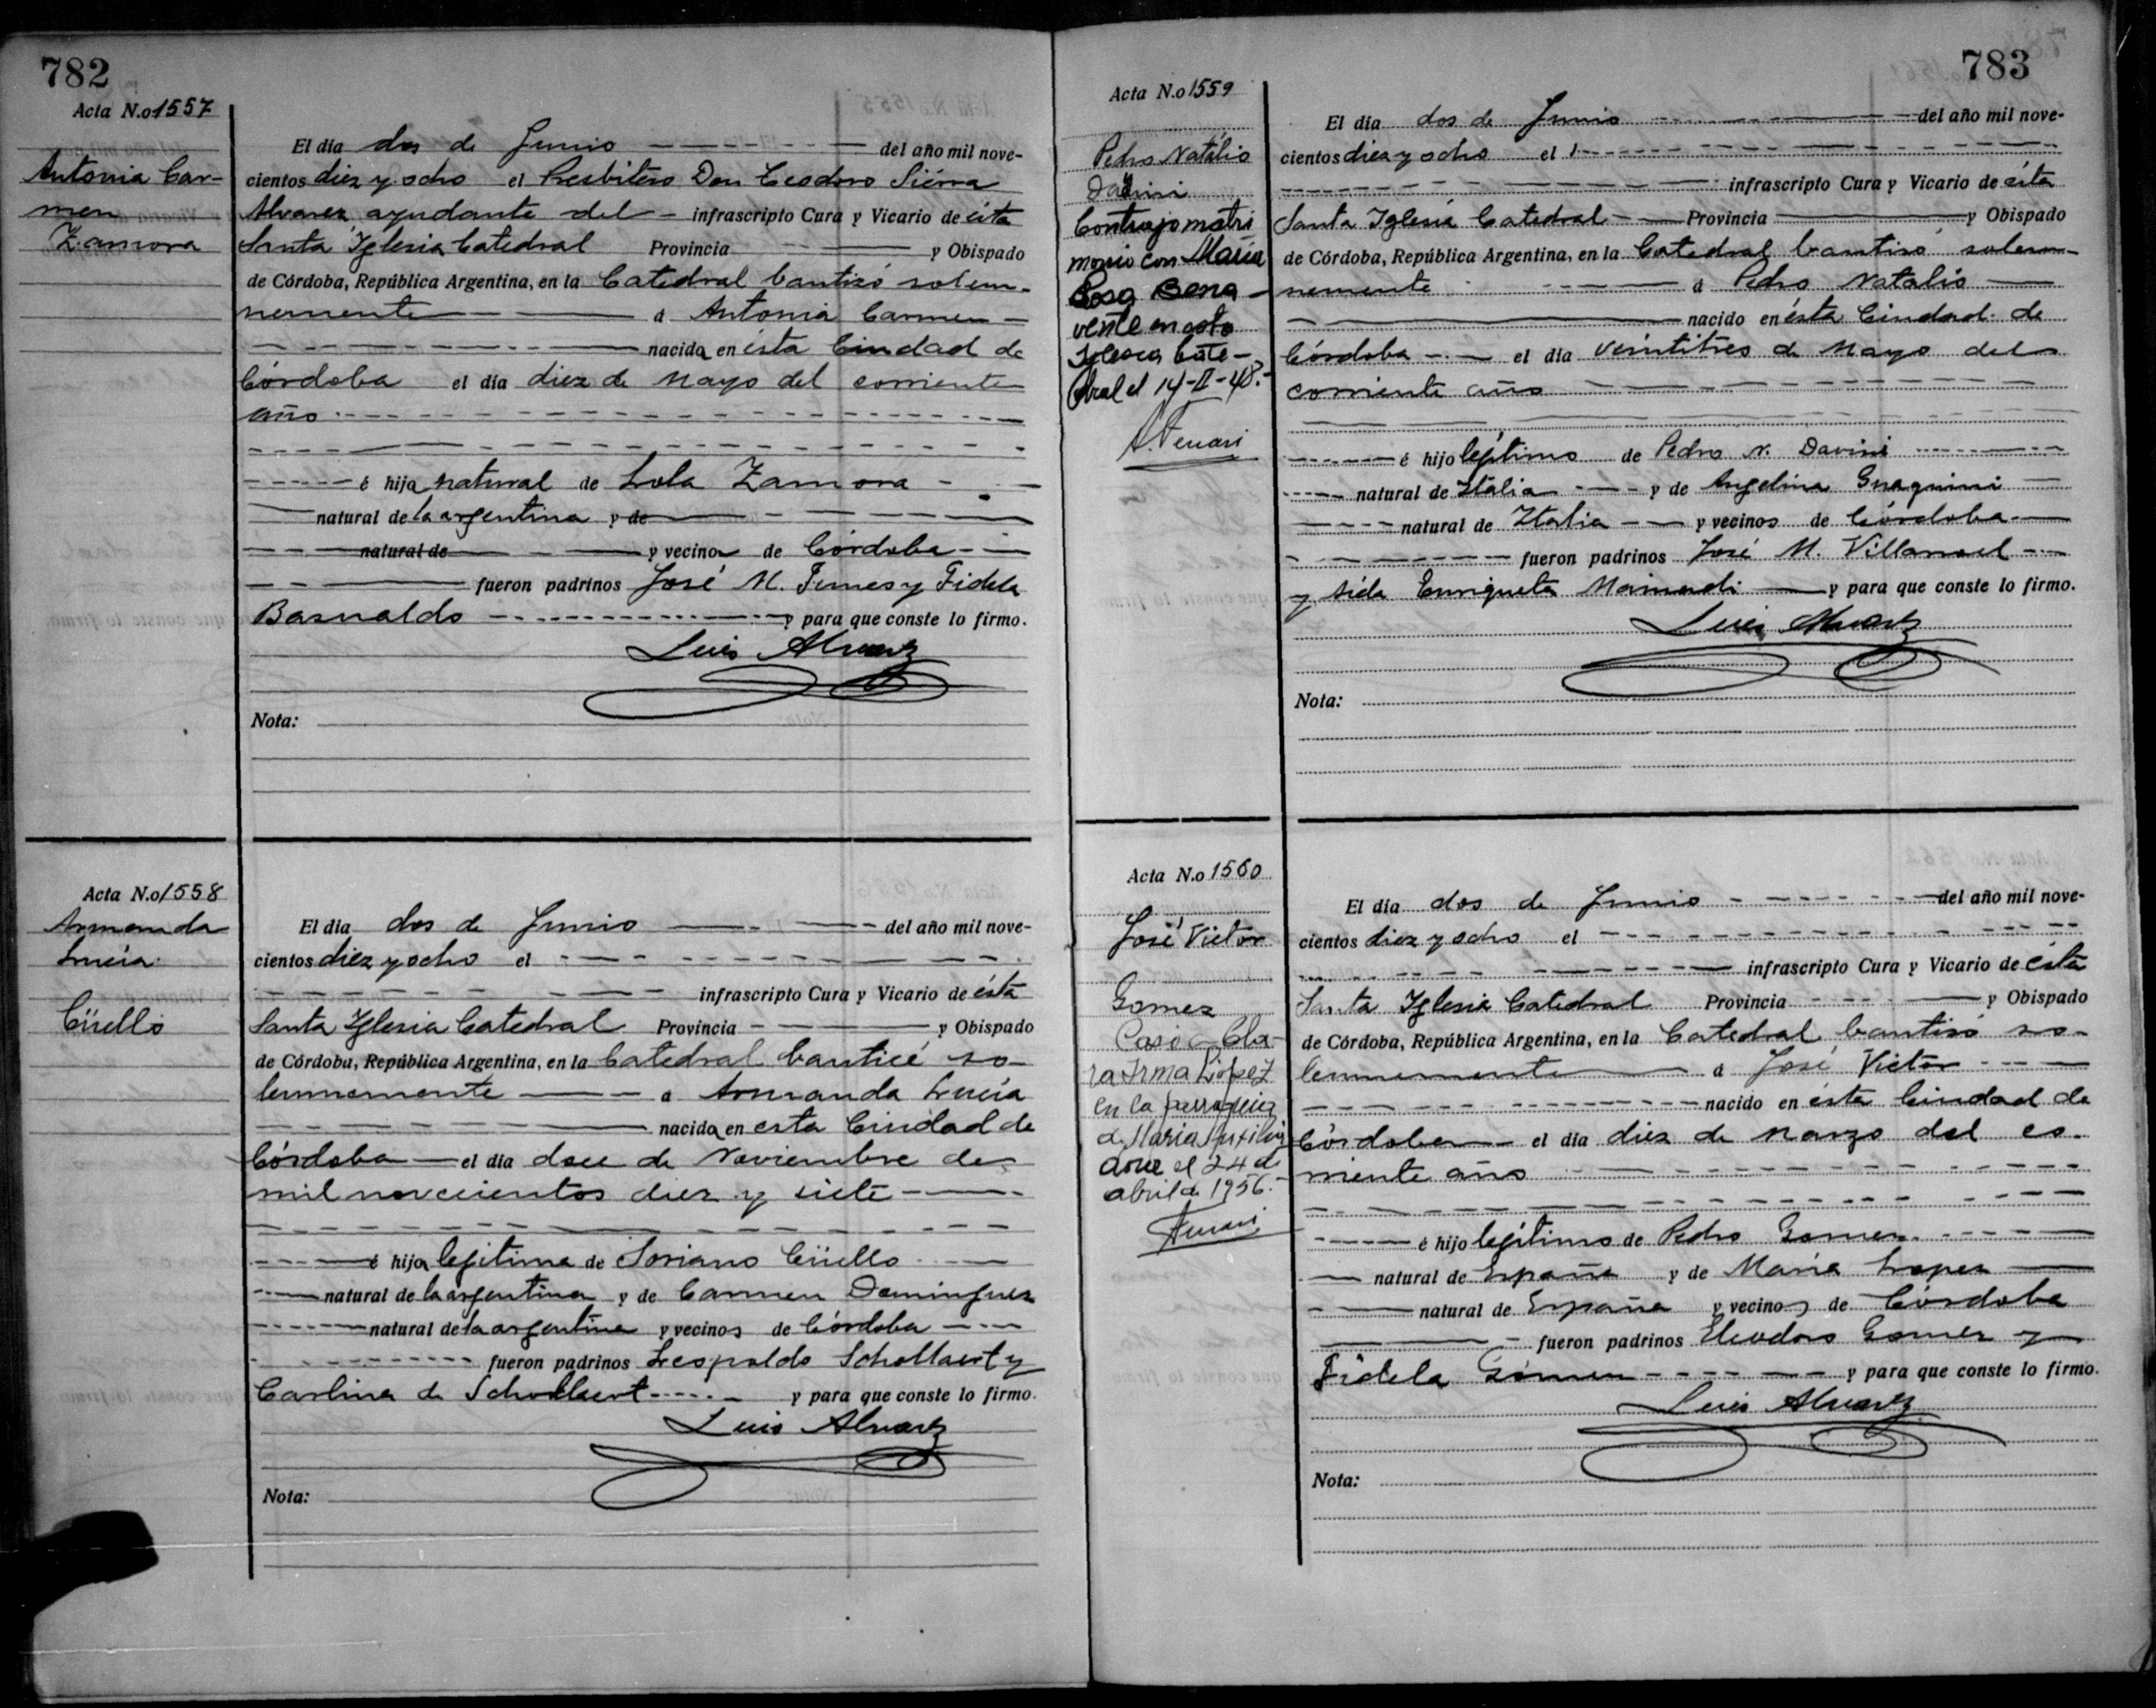 782
Acta N.o 1557
Antonia Car-
men
Zamora
El dia dos de Junio del año mil nove-
cientos diez y ocho el Presbitero Don Teodoro Siérra
Alvarez ayudante del - infrascripto Cura y Vicario de ésta
Santa Iglesia Catedral Provincia y Obispado
de Córdoba, República Argentina, en la Catedral bautizó solem-
nemente a Antonia Carmen
nacida en ésta Ciudad de
Córdoba el dia diez de Mayo del corriente
año
é hija natural de Lola Zamora
natural de la argentina y de
natural de y vecina de Córdoba
fueron padrinos José M. Funes y Fidela
Basualdo y para que conste lo firmo.
Luis Alvarez
Nota:
Acta N.o 1558
Armanda
Lucía
Cüello
El dia dos de Junio del año mil nove-
cientos diez y ocho el
infrascripto Cura y Vicario de ésta
Santa Iglesia Catedral Provincia y Obispado
de Córdoba, República Argentina, en la Catedral bauticé so-
lemnemente a Armanda Lucía
nacida en esta Ciudad de
Córdoba el dia doce de Noviembre de
mil novecientos diez y siete
é hija legítima de Soriano Cüello
natural de la argentina y de Carmen Dominguez
natural de la argentina y vecinos de Córdoba
fueron padrinos Leopoldo Schollaert y
Carlina de Schollaert y para que conste lo firmo.
Luis Alvarez
Nota:
783
Acta N.o 1559
Pedro Natálio
Davini
Contrajo matri
monio con María
Rosa Bena-
vente en esta
Iglesia Cate-
dral el 14-II-48.-
A. Ferrari
El dia dos de Junio del año mil nove-
cientos diez y ocho el
infrascripto Cura y Vicario de ésta
Santa Iglesia Catedral Provincia y Obispado
de Córdoba, República Argentina, en la Catedral bautizó solem-
nemente a Pedro Natalio
nacido en ésta Ciudad de
Córdoba el dia veintitres de Mayo del
corriente año
é hijo legítimo de Pedro N. Davini
natural de Italia y de Angelina Guaquini
natural de Italia y vecinos de Córdoba
fueron padrinos José M. Villarroel
y Enriqueta y para que conste lo firmo.
Luis Alvarez
Nota:
Acta N.o 1560
José Victor
Gomez
Casó Cla-
ra Irma López
en la parroquia
de María Auxilia
dora el 24 de
abril de 1956.-
Ferrari
El dia dos de Junio del año mil nove-
cientos diez y ocho el
infrascripto Cura y Vicario de ésta
Santa Iglesia Catedral Provincia y Obispado
de Córdoba, República Argentina, en la Catedral bautizó so-
lemnemente a José Victor
nacido en ésta Ciudad de
Córdoba el dia diez de Marzo del co-
rriente año
é hijo legítimo de Pedro Gomez
natural de España y de María Lopez
natural de España y vecinos de Córdoba
fueron padrinos Eleodoro Gomez y
Fidela Gómez y para que conste lo firmo.
Luis Alvarez
Nota: